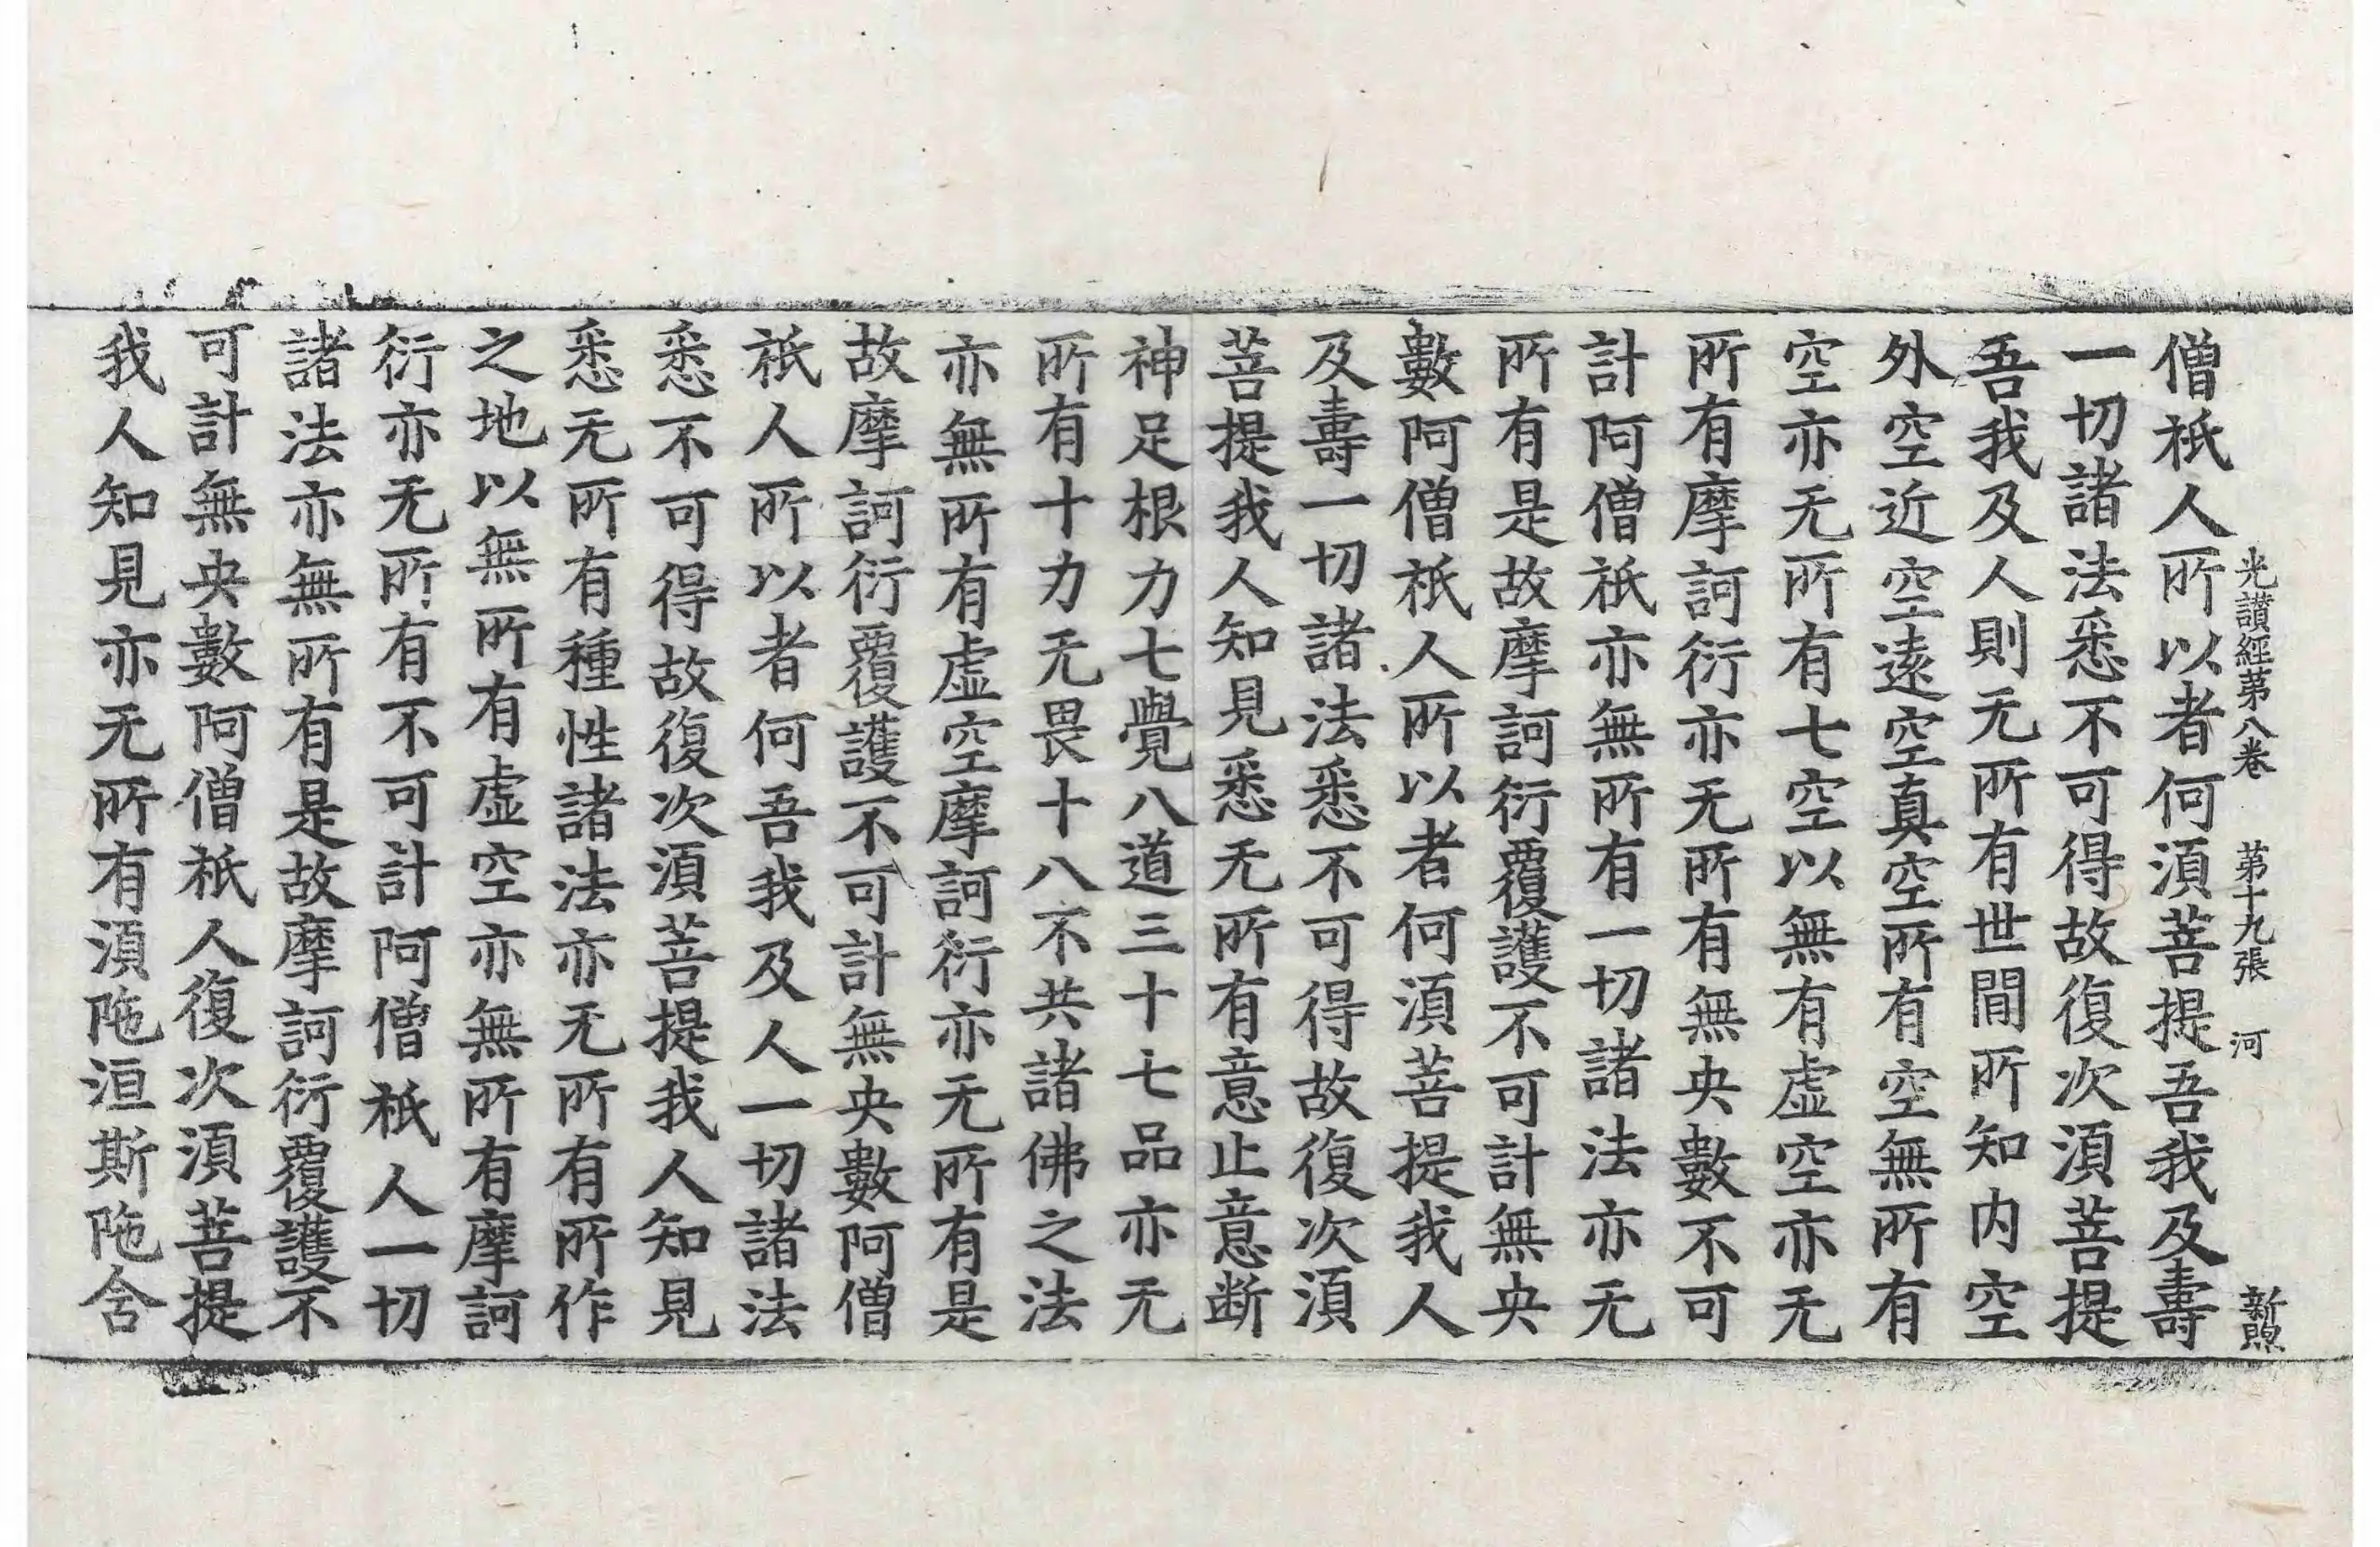 光讃經第八卷 第十九張 河 新煦
僧祇人所以者何須菩提吾我及壽
一切諸法悉不可得故復次須菩提
吾我及人則无所有世間所知内空
外空近空遠空真空所有空無所有
空亦无所有七空以無有虚空亦无
所有摩訶衍亦无所有無央數不可
計阿僧祇亦無所有一切諸法亦无
所有是故摩訶衍覆護不可計無央
數阿僧祇人所以者何須菩提我人
及壽一切諸法悉不可得故復次須
菩提我人知見悉无所有意止意断
神足根力七覺八道三十七品亦无
所有十力无畏十八不共諸佛之法
亦無所有虚空摩訶衍亦无所有是
故摩訶衍覆護不可計無央數阿僧
祇人所以者何吾我及人一切諸法
悉不可得故復次須菩提我人知見
悉无所有種性諸法亦无所有所作
之地以無所有虚空亦無所有摩訶
衍亦无所有不可計阿僧祇人一切
諸法亦無所有是故摩訶衍覆護不
可計無央數阿僧祇人復次須菩提
我人知見亦无所有須陁洹斯陁含